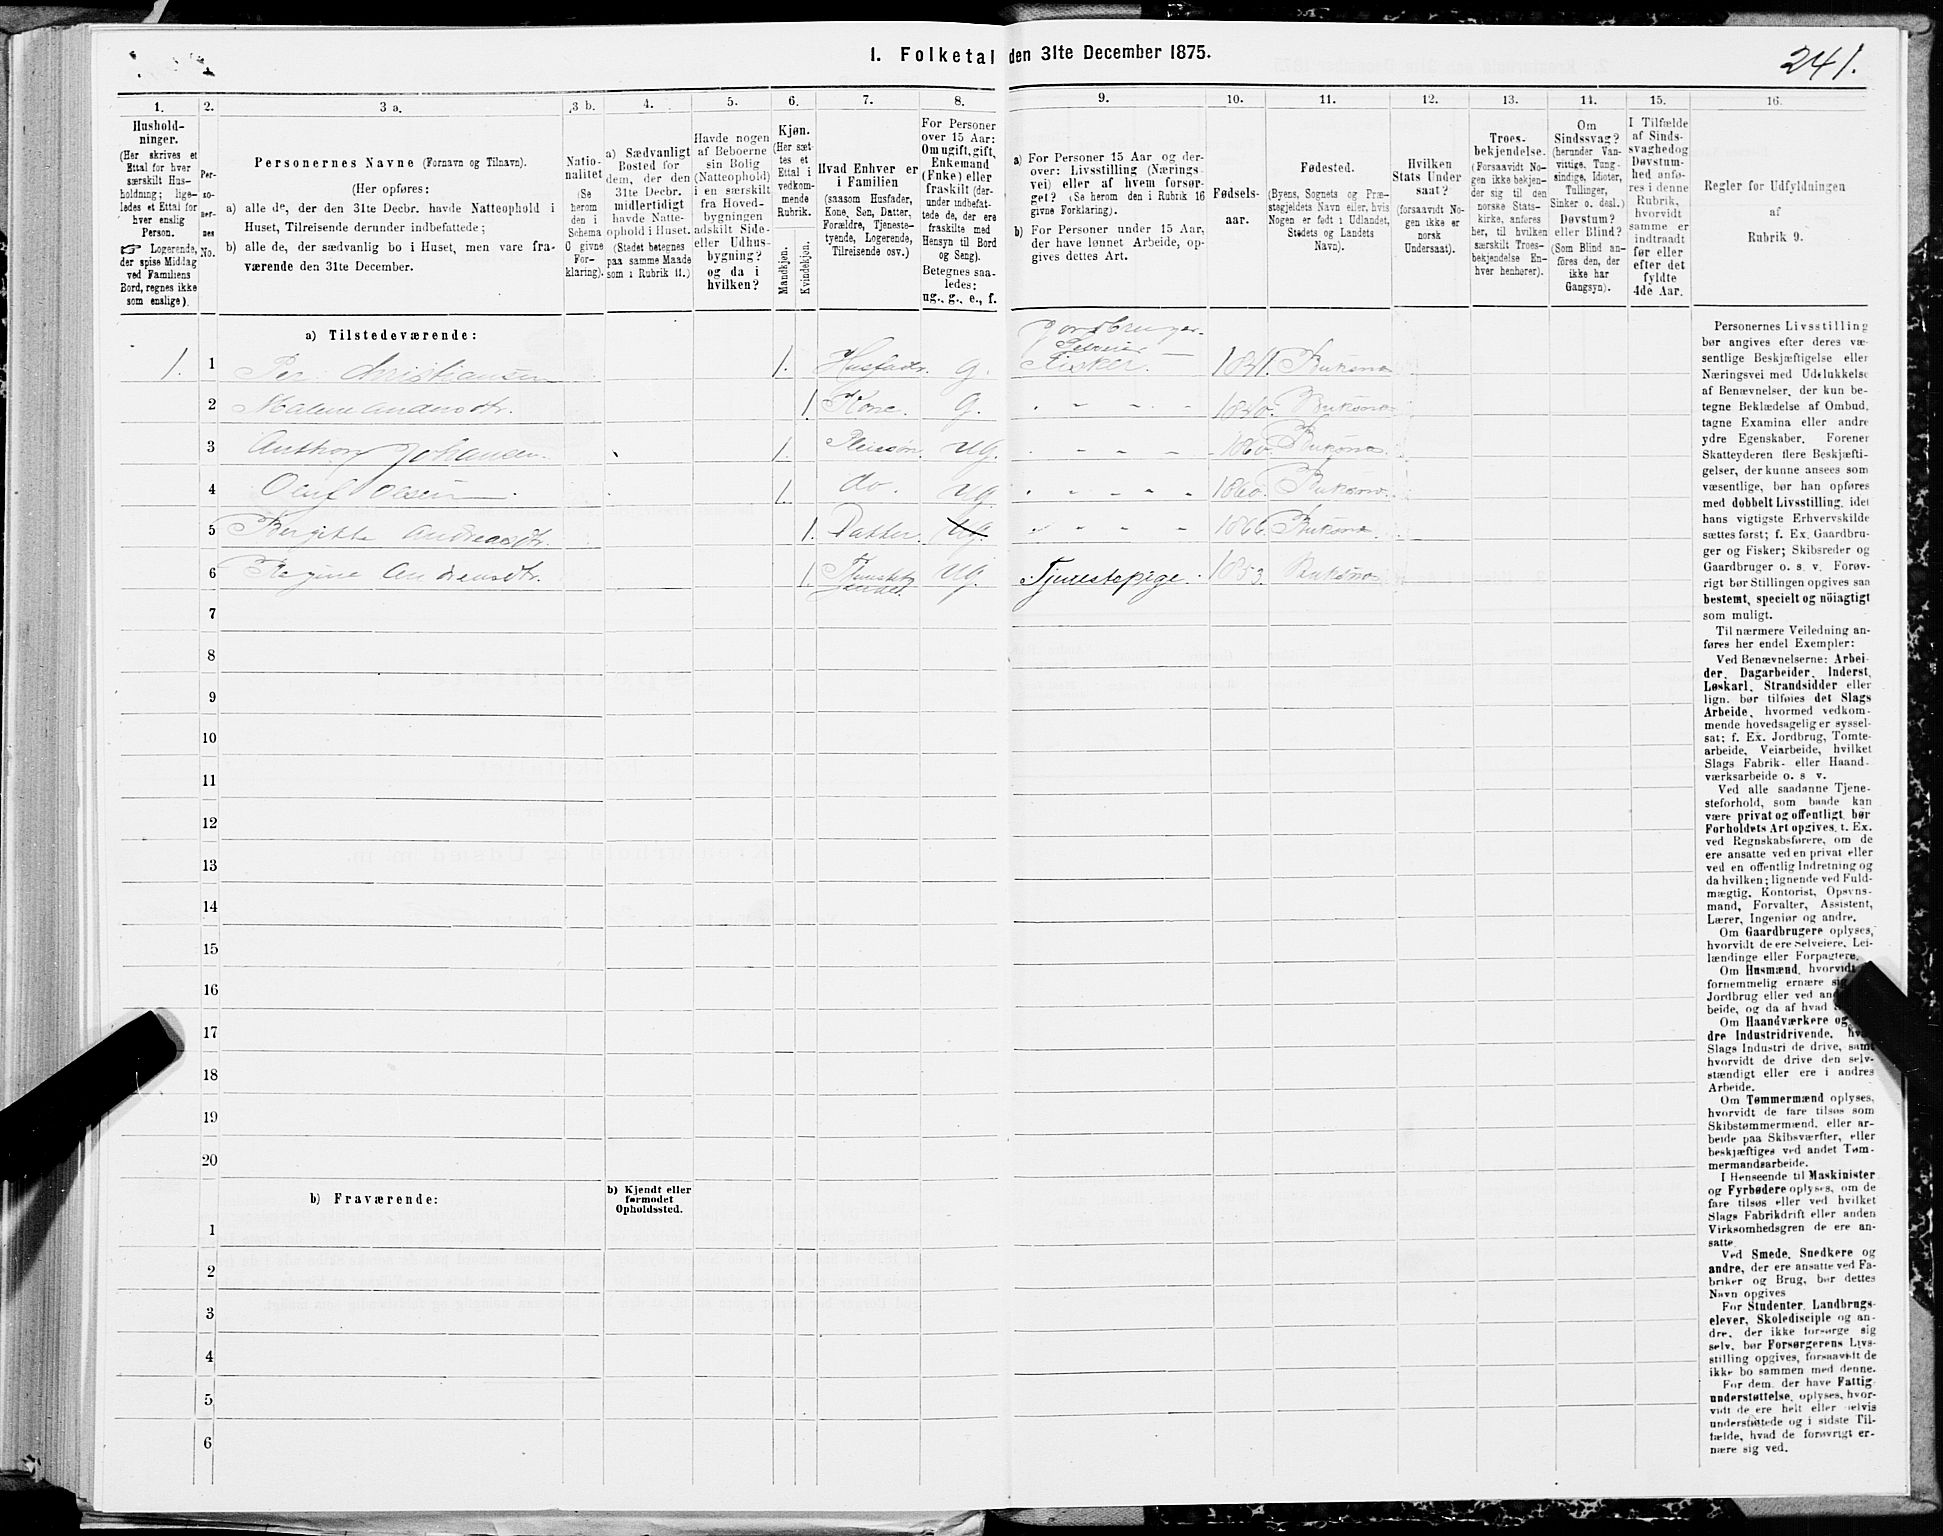 I. Folketal den 31te December 1875.
241.
1. 2. 3 a. 3 b. 4. 5. 6. 7. 8. 9. 10. 11. 12. 13. 14. 15. 16.
Hushold-
ninger.
(Her skrives et
Ettal for hver
særskilt Hus-
holdning; lige-
ledes et Ettal for
hver enslig
Person.
☞ Logerende,
der spise Middag
ved Familiens
Bord, regnes ikke
som enslige).
Per-
so-
ner-
nes
No.
Personernes Navne (Fornavn og Tilnavn).
(Her opføres:
a) alle de, der den 31te Decbr. havde Natteophold i
Huset, Tilreisende derunder indbefattede;
b) alle de, der sædvanlig bo i Huset, men vare fra-
værende den 31te December.
Natio-
nalitet
(Se
herom
den i
Schema
O givne
For-
klaring).
a) Sædvanligt
Bosted for
dem, der den
31te Decbr.
midlertidigt
havde Natte-
ophold i Huset.
(Stedet betegnes
paa samme Maade
som i Rubrik 11.)
Havde nogen
af Beboerne
sin Bolig
(Natteophold)
i en særskilt
fra Hoved-
bygningen
adskilt Side-
eller Udhus-
bygning?
og da i
hvilken?
Kjøn.
(Her sæt-
tes et
Ettal i
vedkom-
mende
Rubrik.
Mandkjøn.
Kvindekjøn.
Hvad Enhver er
i Familien
(saasom Husfader,
Kone, Søn, Datter,
Forældre, Tjeneste-
tyende, Logerende,
Tilreisende osv.)
For Personer
over 15 Aar:
Om ugift, gift,
Enkemand
(Enke) eller
fraskilt (der-
under indbefat-
tede de, der ere
fraskilte med
Hensyn til Bord
og Seng).
Betegnes saa-
ledes:
ug., g., e., f.
a) For Personer 15 Aar og der-
over: Livsstilling (Nærings-
vei) eller af hvem forsør-
get? (Se herom den i Rubrik 16
givne Forklaring).
b) For Personer under 15 Aar,
der have lønnet Arbeide, op-
gives dettes Art.
Fødsels-
aar.
Fødested.
(Byens, Sognets og Præ-
stegjeldets Navn eller, hvis
Nogen er født i Udlandet,
Stedets og Landets
Navn).
Hvilken
Stats Under
saat?
(forsaavidt No-
gen ikke er
norsk
Undersaat).
Troes-
bekjendelse.
(Forsaavidt No-
gen ikke bekjen-
der sig til den
norske Stats-
kirke, anføres
her, til hvilken
særskilt Troes-
bekjendelse En-
hver henhører).
Om
Sindssvag?
(herunder Van-
vittige, Tung-
sindige, Idioter,
Tullinger,
Sinker o. desl.)
Døvstum?
eller Blind?
(Som Blind an-
føres den, der
ikke har
Gangsyn).
I Tilfælde
af Sinds-
svaghed og
Døvstum-
hed anfø-
res i denne
Rubrik,
hvorvidt
samme er
indtraadt
før eller
efter det
fyldte
4de Aar.
Regler for Udfyldningen
af
Rubrik 9.
a) Tilstedeværende:
Jordbruger
Selveier
1. 1 Per Christiansen 1. Husfader. g. Fisker. 1841. Buksnæs
2 Malene Andersdtr. 1. Kone. G. 1840. Buksnæs
3 Anthon Johansen. 1. Pleiesøn. ug. 1860. Buksnæs
4 Oluf Olsen 1. do. ug 1860. Buksnæs
5 Bergitte Andreasdtr. 1. Datter. ug. 1866. Buksnæs
6 Regine Andreasdtr. 1. ug. Tjenestepige. 1853. Buksnæs
7
8
9
10
11
12
13
14
15
16
17
18
19
20
b) Fraværende:
b) Kjendt eller
formodet
Opholdssted.
1
2
3
4
5
6
Personernes Livsstilling
bør angives efter deres væ-
sentlige Beskjæftigelse eller
Næringsvei med Udelukkelse
af Benævnelser, der kun be-
tegne Beklædelse af Ombud,
tagne Examina eller andre
ydre Egenskaber. Forener
Skatteyderen flere Beskjæfti-
gelser, der kunne ansees som
væsentlige, bør han opføres
med dobbelt Livsstilling, idet
hans vigtigste Erhvervskilde
sættes først; f. Ex. Gaardbru-
ger og Fisker; Skibsreder og
Gaardbruger o. s. v. Forøv-
rigt bør Stillingen opgives saa
bestemt, specielt og nöiagtigt
som muligt.
Til nærmere Veiledning an-
føres her endel Exempler:
Ved Benævnelserne: Arbei-
der, Dagarbeider, Inderst,
Løskarl, Strandsidder eller
lign. bør tilføies det Slags
Arbeide, hvormed vedkom-
mende hovedsagelig er syssel-
sat; f. Ex. Jordbrug, Tomte-
arbeide, Veiarbeide, hvilket
Slags Fabrik- eller Haand-
værksarbeide o. s v.
Ved alle saadanne Tjene-
steforhold, som baade kan
være privat og offentligt, bør
Forholdets Art opgives, t. Ex.
ved Regnskabsførere, om de
ere ansatte ved en privat eller
ved en offentlig Indretning og
da hvilken; lignende ved Fuld-
mægtig, Kontorist, Opsyns-
mand, Forvalter, Assistent,
Lærer, Ingeniør og andre.
Om Gaardbrugere oplyses,
hvorvidt de ere Selveiere, Lei-
lændinge eller Forpagtere.
Om Husmænd, hvorvidt
fornemmelig ernære
Jordbrug eller ved
beide, og da af hvad
Om Haandværkere og
dre Industridrivende,
Slags Industri de drive, samt
hvorvidt de drive den selv-
stændigt eller ere i andres
Arbeide.
Om Tømmermænd oplyses,
hvorvidt de fare tilsøs som
Skibstømmermænd, eller ar-
beide paa Skibsværfter, eller
beskjæftiges ved andet Tøm-
mermandsarbeide.
I Henseende til Maskinister
og Fyrbødere oplyses, om de
fare tilsøs eller ved hvilket
Slags Fabrikdrift eller anden
Virksomhedsgren de ere an-
satte
Ved Smede, Snedkere og
andre, der ere ansatte ved Fa-
briker og Brug, bør dettes
Navn opgives
For Studenter, Landbrugs-
elever, Skoledisciple og an-
dre, der ikke forsørge sig
selv, bør Forsørgerens Livs-
stilling opgives, forsaavidt de
ikke bo sammen med denne.
For dem, der have Fattig-
understøttelse, oplyses, hvor-
vidt de ere helt eller delvis
understøttede og i sidste Til-
fælde, hvad de forøvrigt er-
nære sig ved.